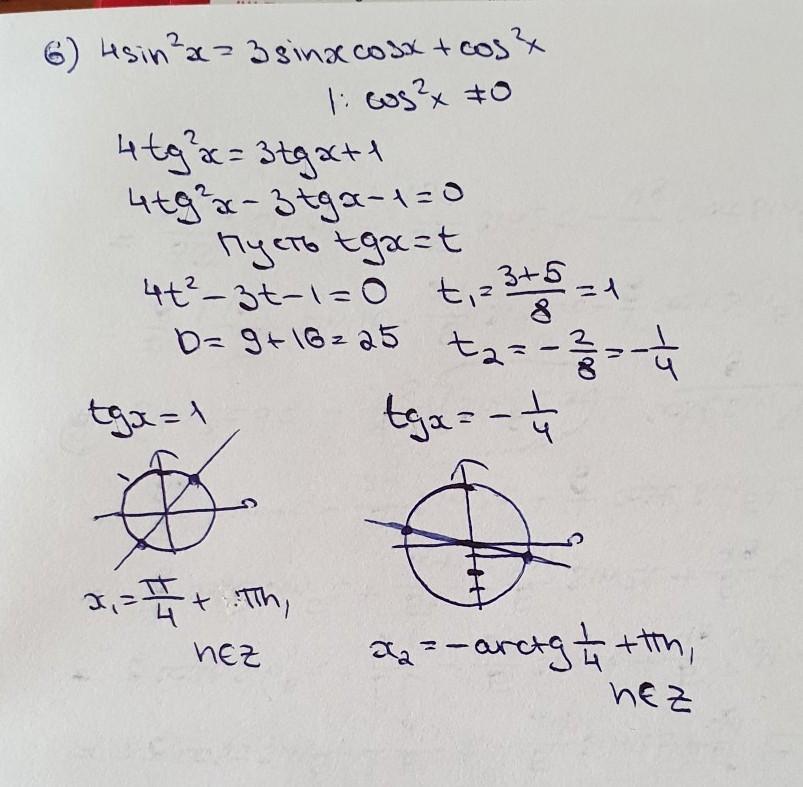 6) 4sin²x = 3sinxcosx + cos²x
|: cos²x ≠ 0
4tg²x = 3tgx + 1
4tg²x - 3tgx - 1 = 0
Пусть tgx = t
4t² - 3t - 1 = 0    t₁ = (3+5)/8 = 1
D = 9 + 16 = 25    t₂ = -2/8 = -1/4
tgx = 1    tgx = -1/4
x₁ = π/4 + πn,
n∈Z
x₂ = -arctg 1/4 + πn,
n∈Z